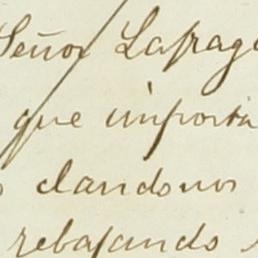 Señor Lafrag
que importa
dandonos
rebajando